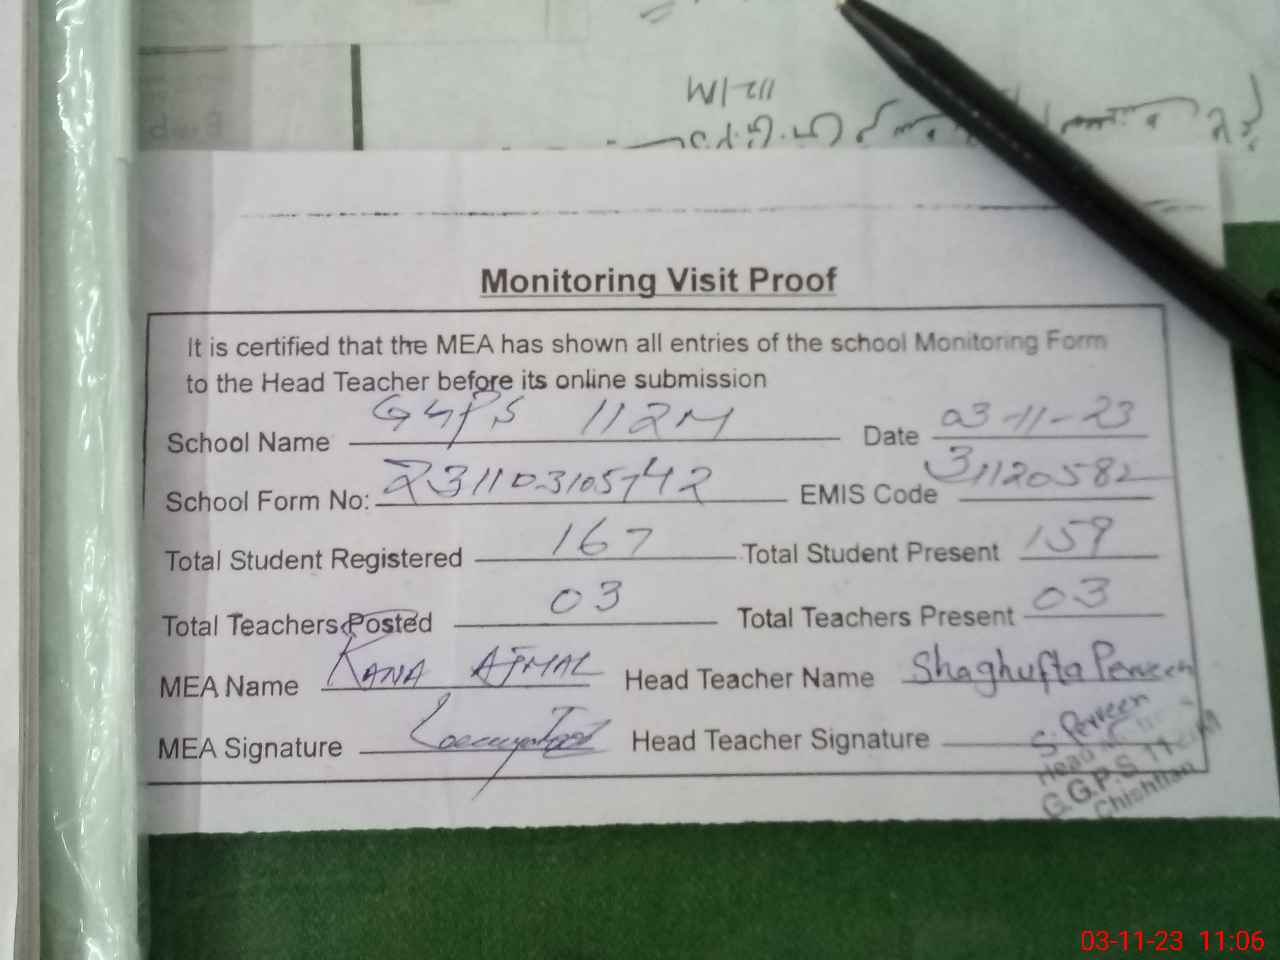 Monitoring Visit Proof
It is certified that the MEA has shown all entries of the school Monitoring Form
to the Head Teacher before its online submission
School Name GGPS 112M Date 03-11-23
School Form No: 231103105742 EMIS Code 31120582
Total Student Registered 167 Total Student Present 159
Total Teachers Posted 03 Total Teachers Present 03
MEA Name RANA AJMAL Head Teacher Name Shaghufta Perveen
MEA Signature Head Teacher Signature S. Perveen
Head
G.G.P.S 11
Chishtian
03-11-23 11:06